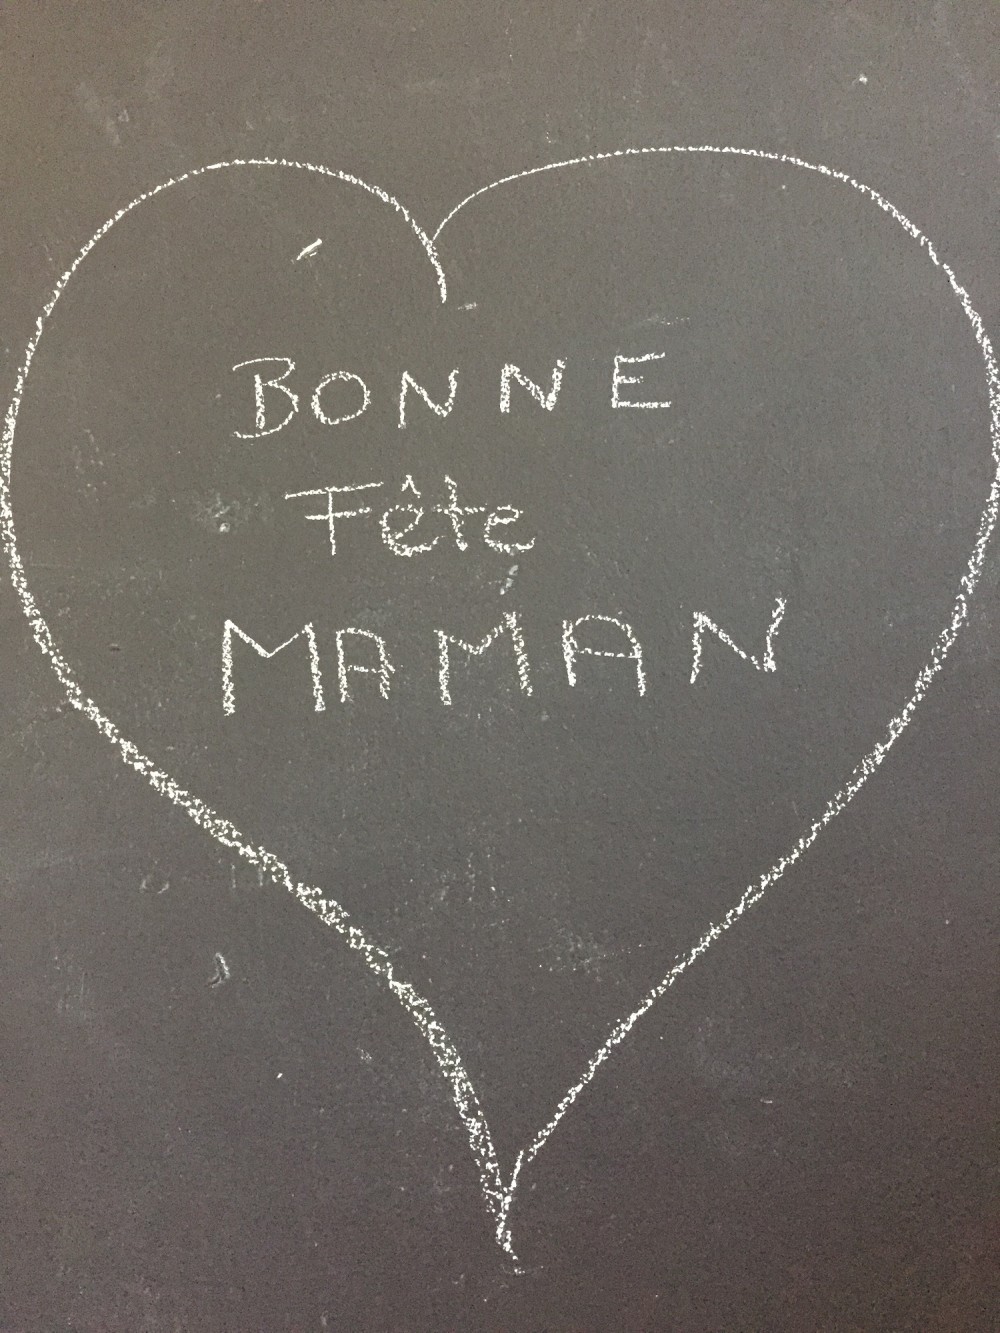 BONNE
Fête
MAMAN